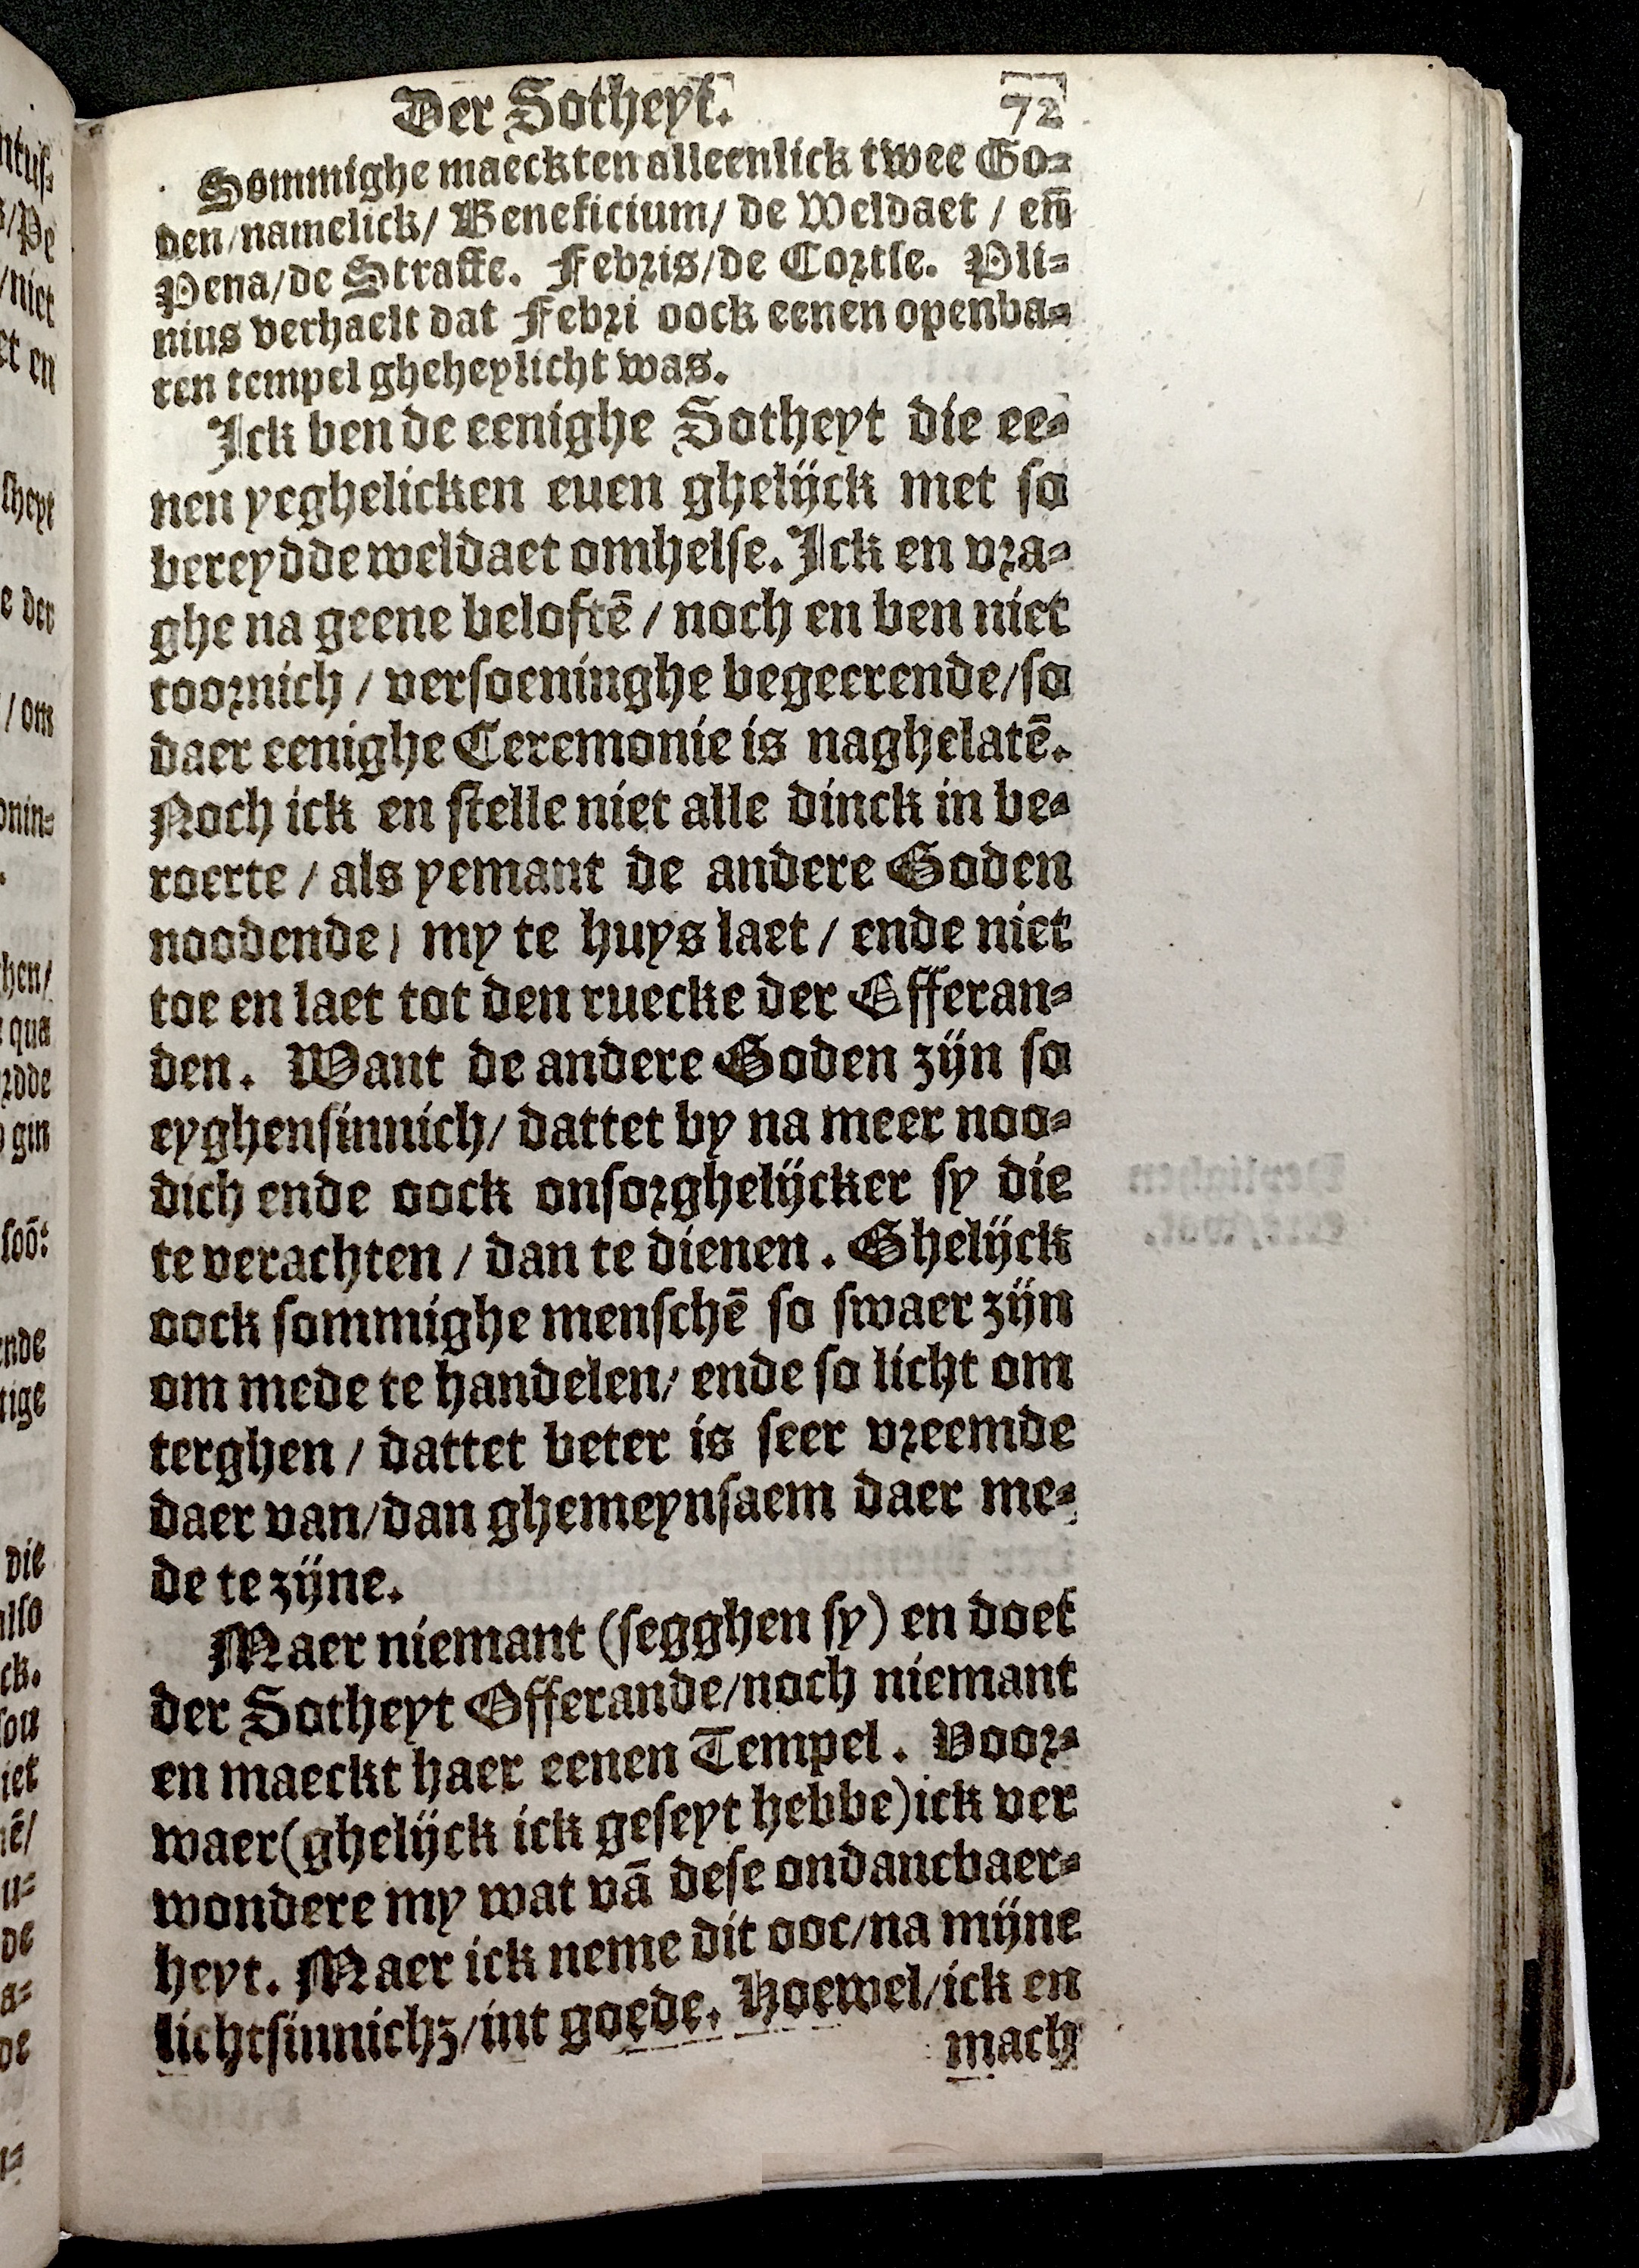 Der Sotheyt. 72
Sommighe maeckten alleenlick twee Go⸗
den/namelick/ Beneficium/ de Weldaet / en̄
Pena/de Straffe. Febris/de Cortse. Pli⸗
nius verhaelt dat Febri oock eenen openba⸗
ren tempel gheheylicht was.
Ick ben de eenighe Sotheyt die ee⸗
nen yeghelicken euen ghelijck met so
bereydde weldaet omhelse. Ick en vra⸗
ghe na geene beloftē / noch en ben niet
toornich / versoeninghe begeerende/so
daer eenighe Ceremonie is naghelatē.
Noch ick en stelle niet alle dinck in be⸗
roerte / als yemant de andere Goden
noodende) my te huys laet / ende niet
toe en laet tot den ruecke der Efferan⸗
den. Want de andere Goden zijn so
eyghensinnich/ dattet by na meer noo⸗
dich ende oock onsorghelijcker sy die
te verachten / dan te dienen. Ghelijck
oock sommighe menschē so swaer zijn
om mede te handelen/ ende so licht om
terghen / dattet beter is seer vreemde
daer van/dan ghemeynsaem daer me⸗
de te zijne.
Maer niemant (segghen sy) en doet
der Sotheyt Offerande/noch niemant
en maeckt haer eenen Tempel. Voor⸗
waer(ghelijck ick geseyt hebbe)ick ver
wondere my wat vā dese ondancbaer⸗
heyt. Maer ick neme dit ooc/na mijne
lichtsinnichz/int goede. Hoewel/ick en
mach
ntus⸗
/Pe
/niet
et en
sheyt
e der
/ om
onin⸗
hen/
qua
rdde
gin
soō:
ende
tige
die
also
ck.
sou
iet
ē/
u⸗
de
a⸗
de